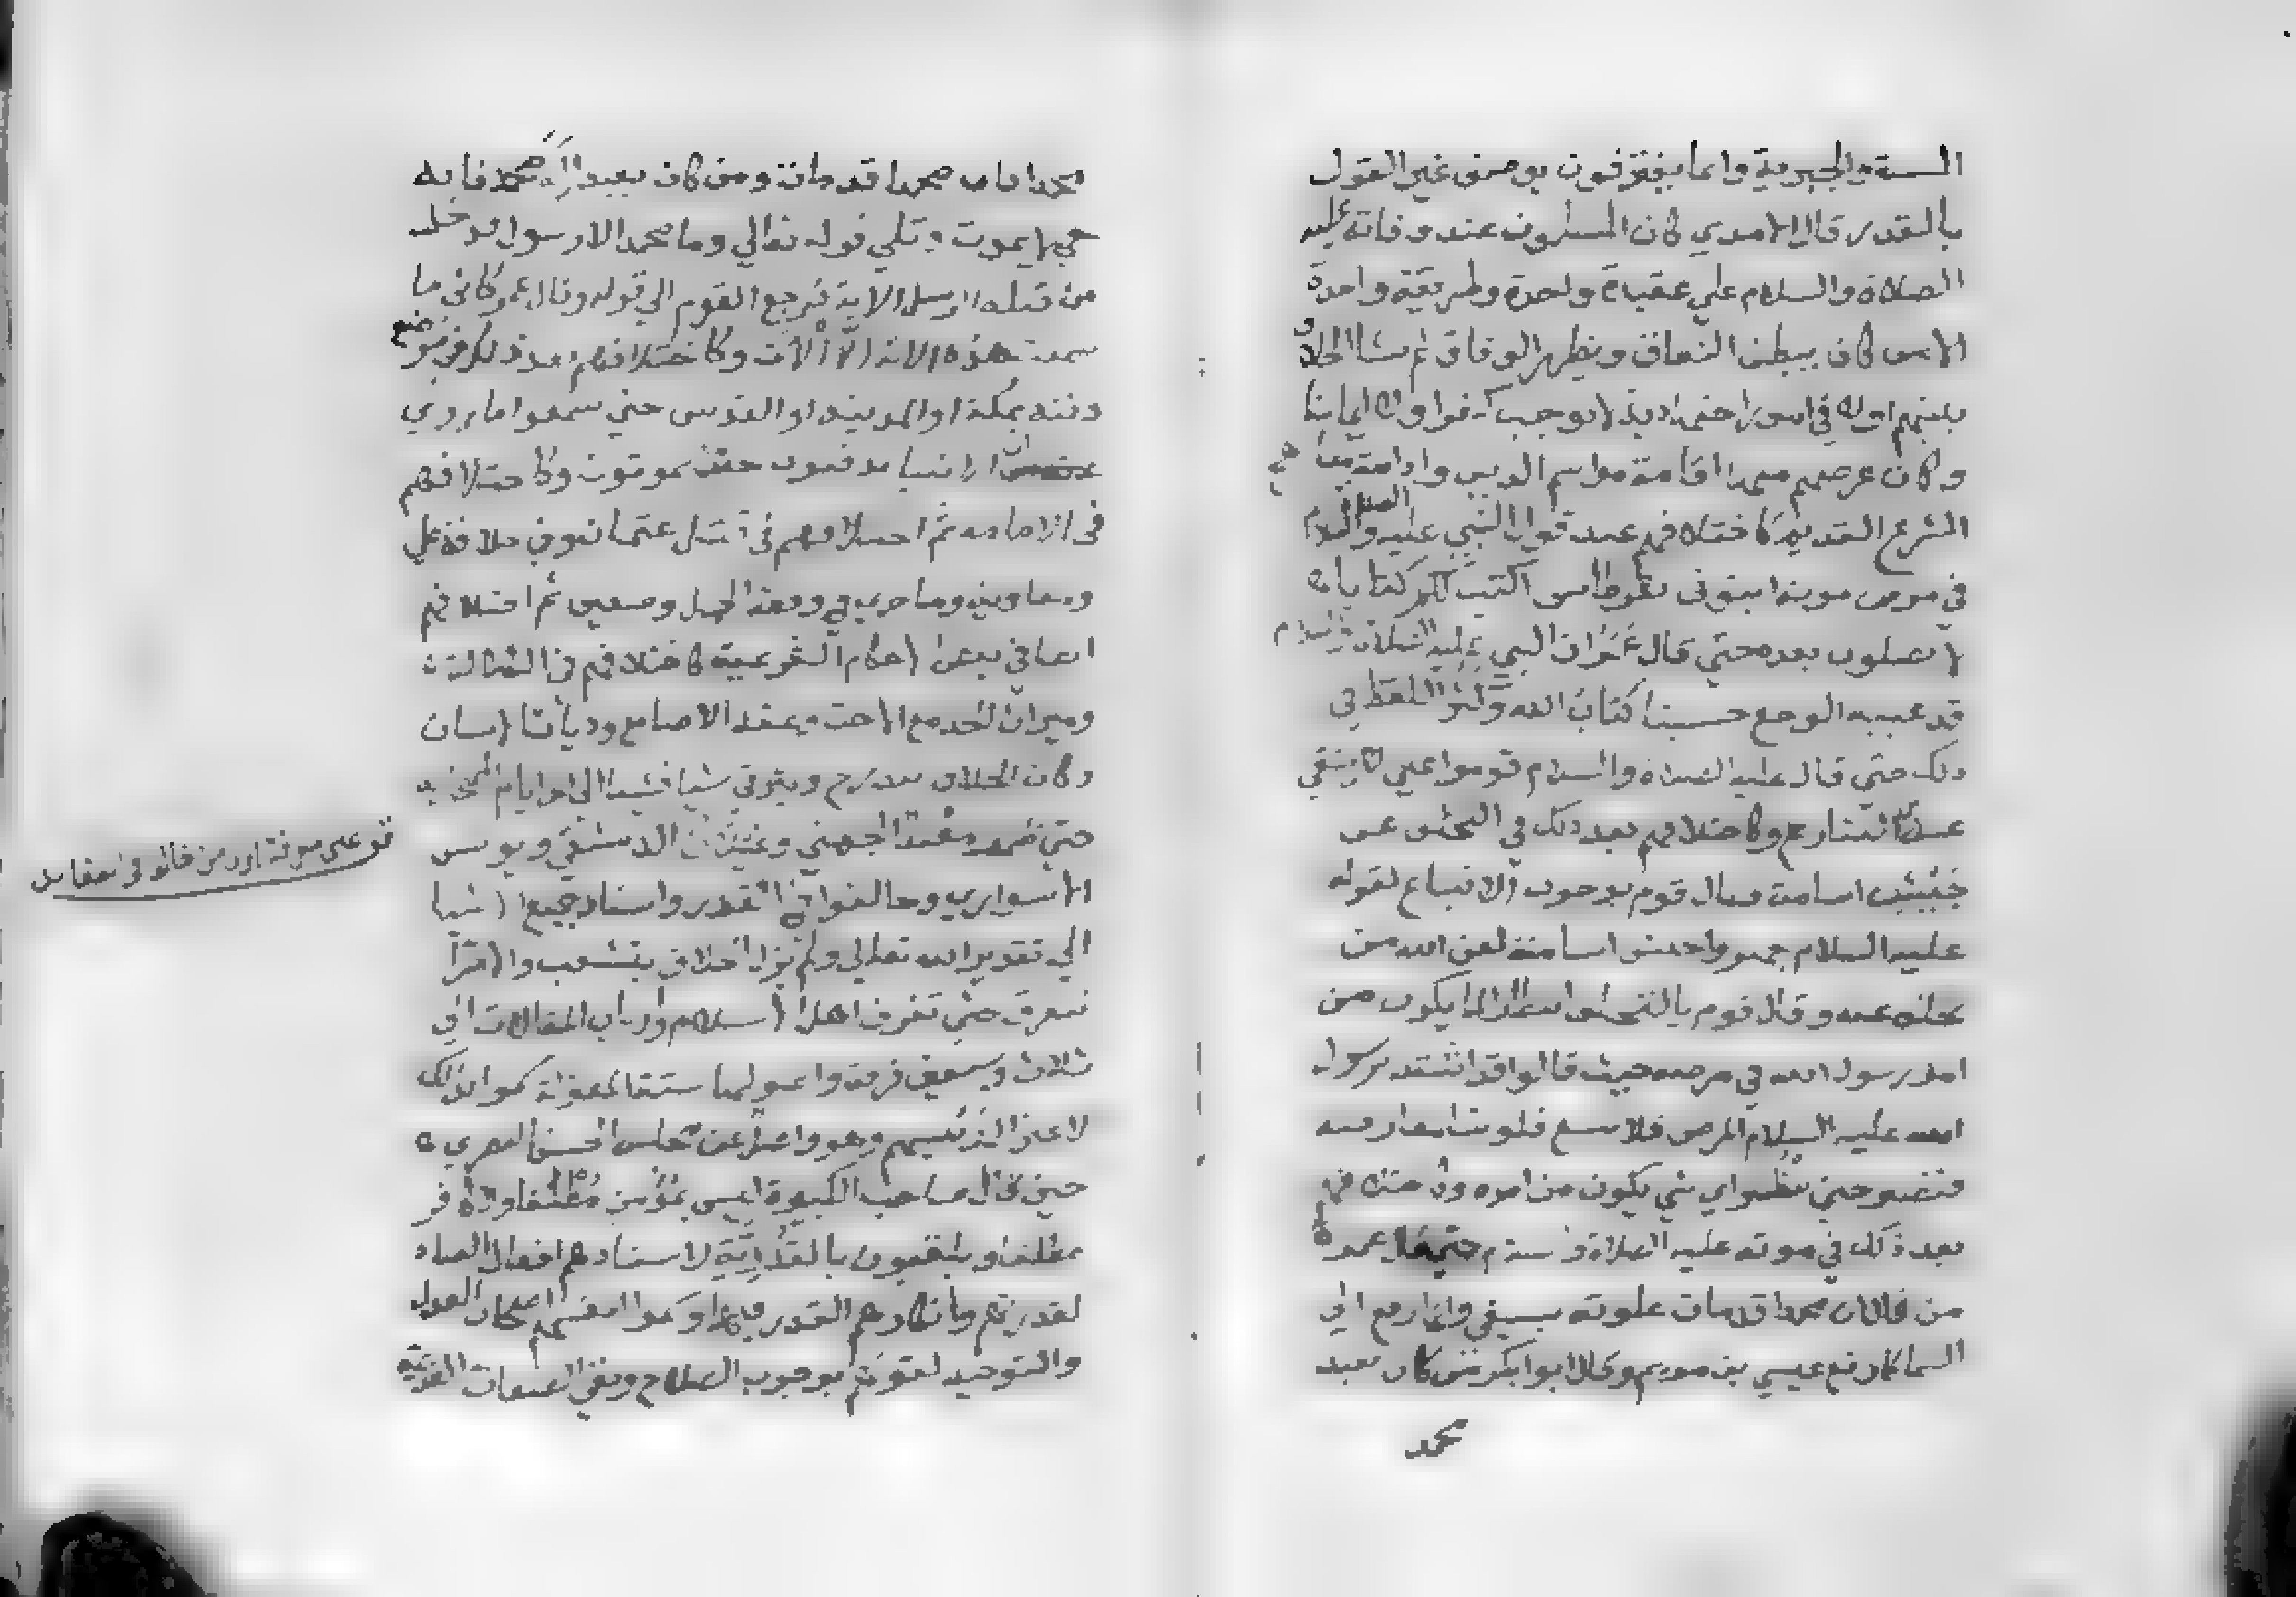 السنة والجبرية وانما يفترفون بوصف غير القول
بالقدر قال الامدي كان المسلمون عند وفاته عليه
الصلاة والسلام علي عقيدة واحدة وطريقة واحدة
الا من كان يبطن النفاق ويظهر الوفاق ثم نشا الخلاف
بينهم اولا في امور اجتهادية لا توجب كفرا ولا ايمانا
وكان غرضهم منها اقامة مراسم الدين وادامة مناهج
الشرع القديم كاختلافهم عند قول النبي عليه الصلاة والسلام
في مرض موته ايتوني بقرطاس اكتب لكم كتابا
لا تضلون بعده حتي قال عمر ان النبي عليه الصلاة والسلام
قد غلبه الوجع حسبنا كتاب الله وكثر اللغط في
ذلك حتي قال عليه الصلاة والسلام قوموا عني لا ينبغي
عندي التنازع وكاختلافهم بعد ذلك في التخلف عن
جيش اسامة فقال قوم بوجوب الاتباع لقوله
عليه السلام جهزوا جيش اسامة لعن الله من
تخلف عنه وقال قوم بالتخلف انتظارا لما يكون من
امر رسول الله في مرضه حيث قالوا قد اشتد برسول
الله عليه السلام المرض فلا تسع قلوبنا مفارقته
فنصبر حتي ننظر اي شي يكون من امره وكاختلافهم
بعد ذلك في موته عليه الصلاة والسلام حتي قال عمر
من قال ان محمدا قد مات علوته بسيفي وانما رفع الي
السما كما رفع عيسي بن مريم وقال ابو بكر من كان يعبد
محمد
محمدا فان محمدا قد مات ومن كان يعبد اله محمد فانه
حي لا يموت وتلي قوله تعالي وما محمد الا رسول قد خلت
من قبله الرسل الاية فرجع القوم الي قوله وقال عمر كاني ما
سمعت هذه الاية الا الان وكاختلافهم بعد ذلك في موضع
دفنه بمكة او المدينة او القدس حتي سمعوا ما روي
الانبيا يدفنون حيث يموتون وكاختلافهم
في الامامة ثم اختلافهم في قتل عثمان وفي خلافة علي
ومعاوية وما جري في وقعة الجمل وصفين ثم اختلافهم
ايضا في بعض الاحكام الفرعية كاختلافهم في الكلالة
وميراث الجد مع الاخت وعقد الاصابع وديات الاسنان
وكان الخلاف يتدرج ويترقي شيا فشيا الي اخر ايام الصحابة
حتي ظهر معبد الجهني وغيلان الدمشقي ويونس
الاسواري وخالفوا في القدر واسناد جميع الاشيا
الي تقدير الله تعالي ولم يزل الخلاف يتشعب والارا
تتفرق حتي تفرق اهل الاسلام وارباب المقالات الي
ثلاث وسبعين فرقة واصولها ستة المعتزلة سموا بذلك
لاعتزال رئيسهم وهو واصل عن مجلس الحسن البصري
حين قال صاحب الكبيرة ليس بمؤمن مطلقا ولا كافر
مطلقا ويلقبون بالقدرية لاسنادهم افعال العباد
لقدرتهم وانكارهم القدر فيها وسموا انفسهم اصحاب العدل
والتوحيد لقولهم بوجوب الصلاح ونفي الصفات القديمة
قف علي معرفة اول من خالف في العقايد